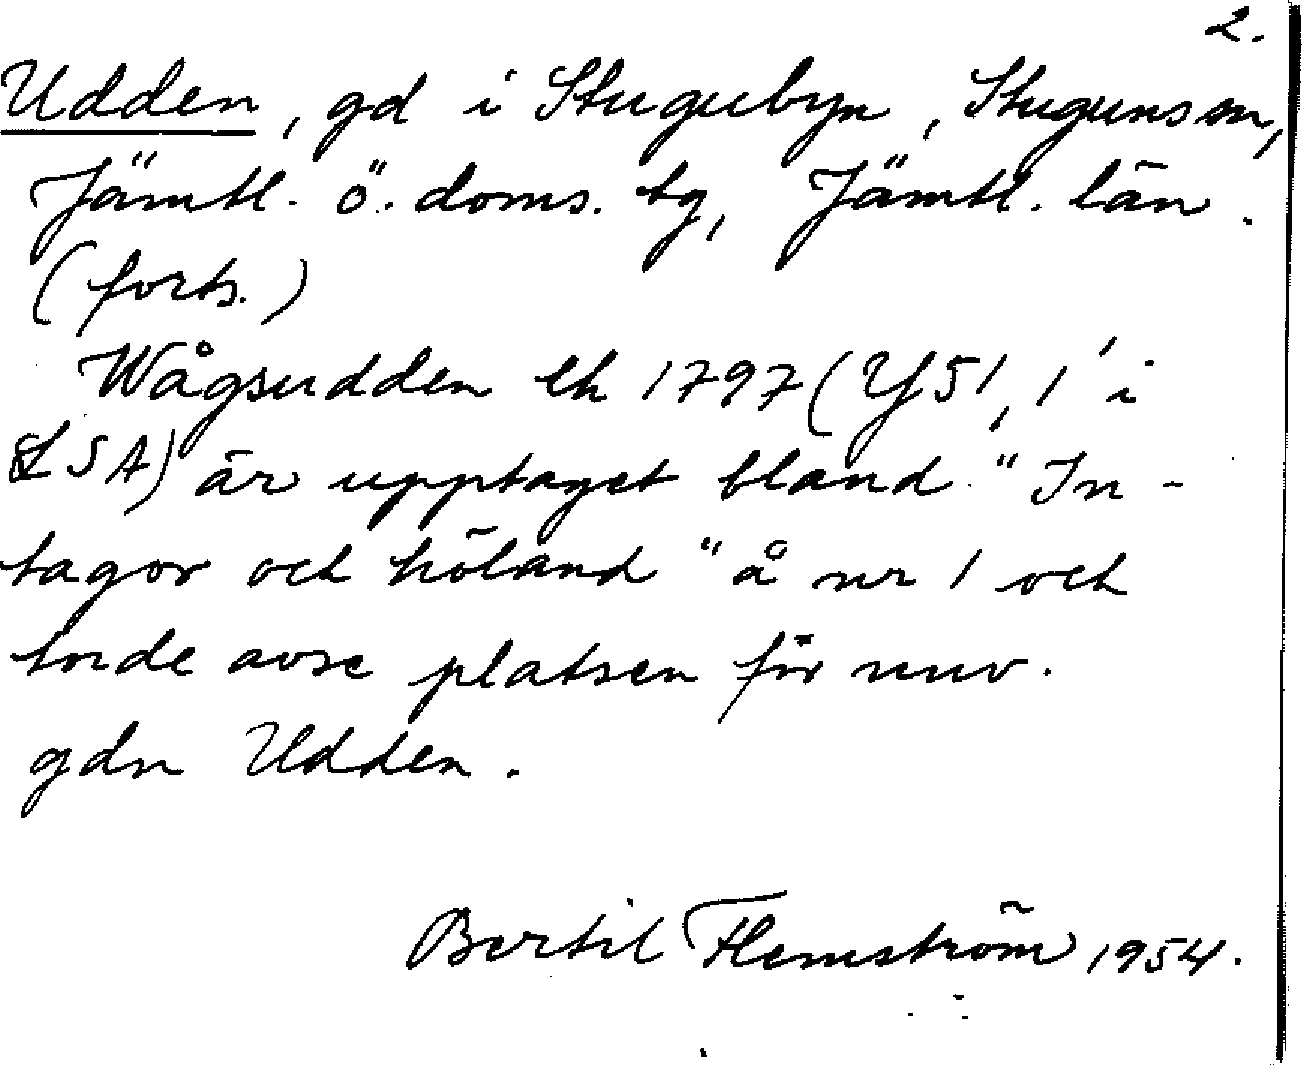 2.
Udden, gd i Stugubyn, Stuguns sn,
Jämtl. ö. doms. tg, Jämtl. län.
(forts.)
Wågsudden lh 1797 (Y51, 1 i
LSA) är upptaget bland "In-
tagor och höland" å nr 1 och
torde avse platsen för nuv.
gdn Udden.
Bertil Flemström 1954.